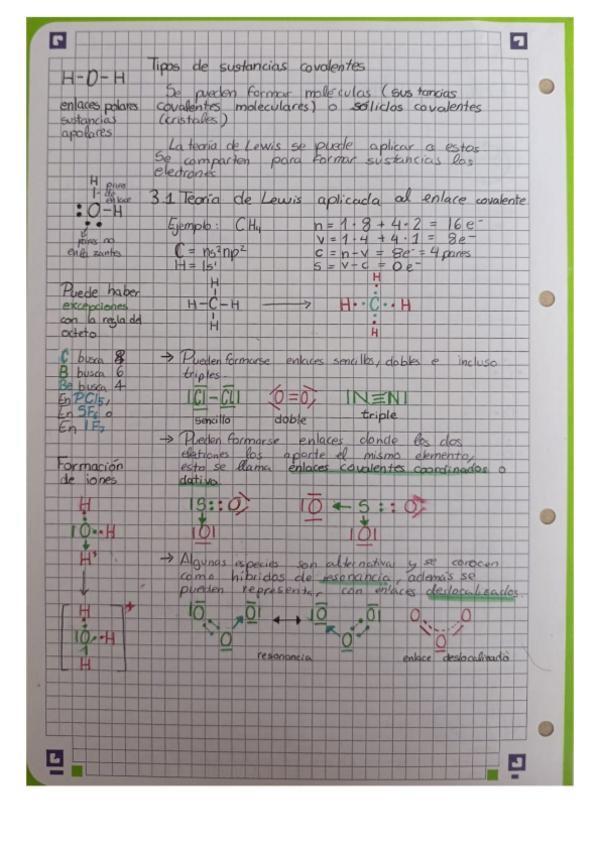 Tipos de sustancias covalentes
H-O-H
Se pueden formar moléculas (sustancias
enlaces polares
covalentes moleculares) o sólidos covalentes
sustancias
(cristales)
apolares
La teoría de Lewis se puede aplicar a estos
Se comparten para formar sustancias los
electrones
H
pares
de
enlace
3.1 Teoría de Lewis aplicada al enlace covalente
O-H
pares no
enlazantes
Ejemplo: CH4
n = 1·8 + 4·2 = 16e-
v = 1·4 + 4·1 = 8e-
C = ns²np²
c = n-v = 8e- = 4 pares
H = 1s¹
s = v-c = 0e-
H
H-C-H
H
H
H··C··H
H
Puede haber
excepciones
con la regla del
octeto
C busca 8
B busca 6
Be busca 4
En PCl5,
En SF6 o
En IF7
→ Pueden formarse enlaces sencillos, dobles e incluso
triples.
Cl-Cl
O=O
N≡N
sencillo
doble
triple
→ Pueden formarse enlaces donde los dos
los aporte el mismo elemento,
esto se llama enlaces covalentes coordinados o
dativo.
Formación
de iones
H
O··H
H+
S::O
O
O ← S::O
O
→ Algunas especies son alternativa y se conocen
como híbridos de resonancia, además se
pueden representar con enlaces deslocalizados.
H
O··H
H
+
O O
O
↔
O O
O
O O
O
resonancia
enlace deslocalizado